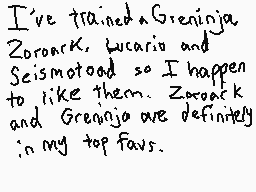 I've trained a Greninja
Zoroark, Lucario and
Seismotoad so I happen
to like them. Zoroark
and Greninja are definitely
in my top favs.